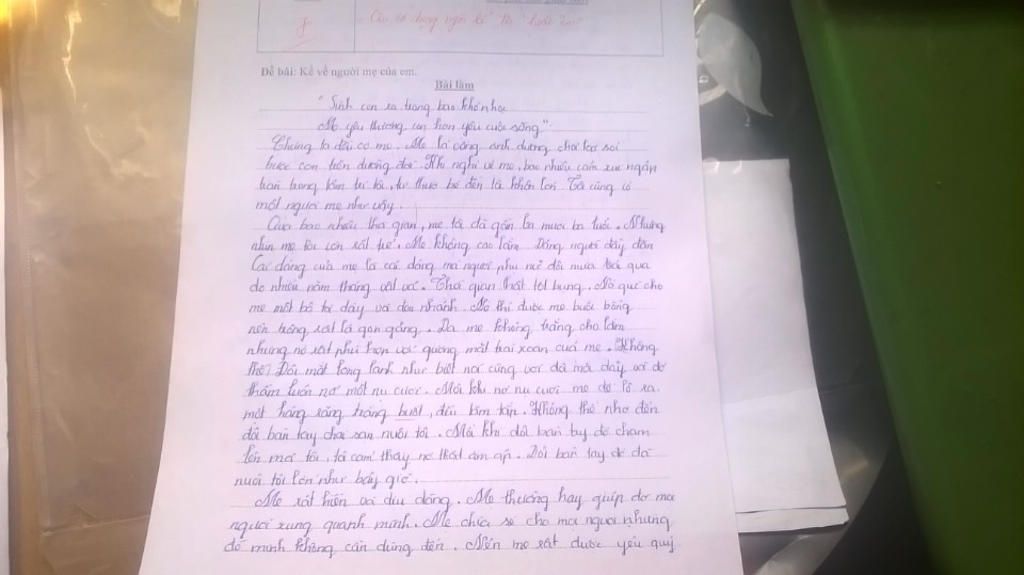 Đề bài: Kể về người mẹ của em.
Bài làm
"Sinh con ra trong bao khó nhọc
Mẹ yêu thương con hơn yêu cuộc sống".
Chúng ta đều có mẹ. Mẹ là công ánh dương chói lọi soi
bước con trên đường đời. Khi nghĩ về mẹ, bao nhiêu cảm xúc ngập
tràn trong tâm trí tôi, từ thuở bé đến là khôn lớn. Tôi cũng có
một người mẹ như vậy.
Qua bao nhiêu thời gian, mẹ tôi đã gần ba mươi ba tuổi. Nhưng
nhìn mẹ tôi còn rất trẻ. Mẹ không cao lắm. Dáng người đầy đặn
Cái dáng của mẹ là cái dáng mà người phụ nữ đã nửa trải qua
do nhiều năm tháng vất vả. Thời gian thật tốt bụng. Nó quý cho
mẹ một bộ tóc dày và đen nhánh. Nó thì được mẹ buộc bổng
nên trông rất là gọn gàng. Da mẹ không trắng cho lắm
nhưng nó rất phù hợp với gương mặt trái xoan của mẹ. Không
thế? Đôi mắt long lanh như biết nói cùng với đôi má đầy và đỏ
thắm luôn nở một nụ cười. Mỗi khi nở nụ cười mẹ để lộ ra
một hàng răng trắng buốt, đều tăm tắp. Không thể nhớ đến
đôi bàn tay chai sạn nuôi tôi. Mỗi khi đôi bàn tay đó chạm
lên má tôi, tôi cảm thấy nó thật ấm áp. Đôi bàn tay đó đã
nuôi tôi lớn như bây giờ.
Mẹ rất hiền và dịu dàng. Mẹ thường hay giúp đỡ mọi
người xung quanh mình. Mẹ chia sẻ cho mọi người những
đồ mình không cần dùng đến. Nên mẹ rất được yêu quý